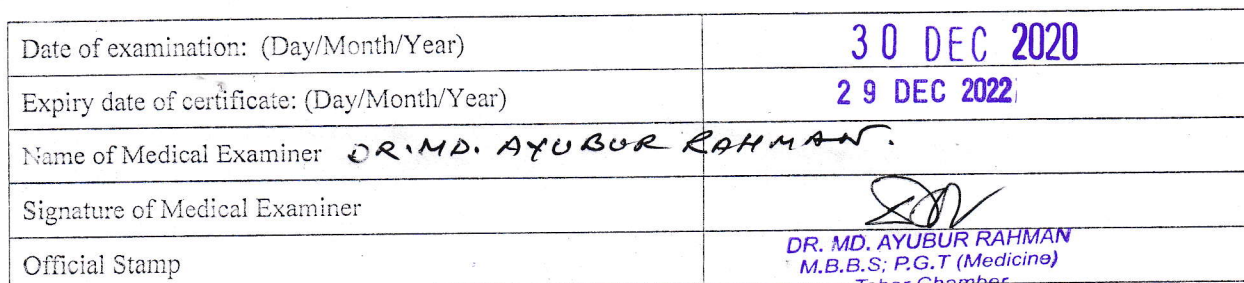 Date of examination: (Day/Month/Year) 30 DEC 2020
Expiry date of certificate: (Day/Month/Year) 29 DEC 2022
Name of Medical Examiner DR. MD. AYUBUR RAHMAN.
Signature of Medical Examiner
DR. MD. AYUBUR RAHMAN
M.B.B.S; P.G.T (Medicine)
Official Stamp
Chamber